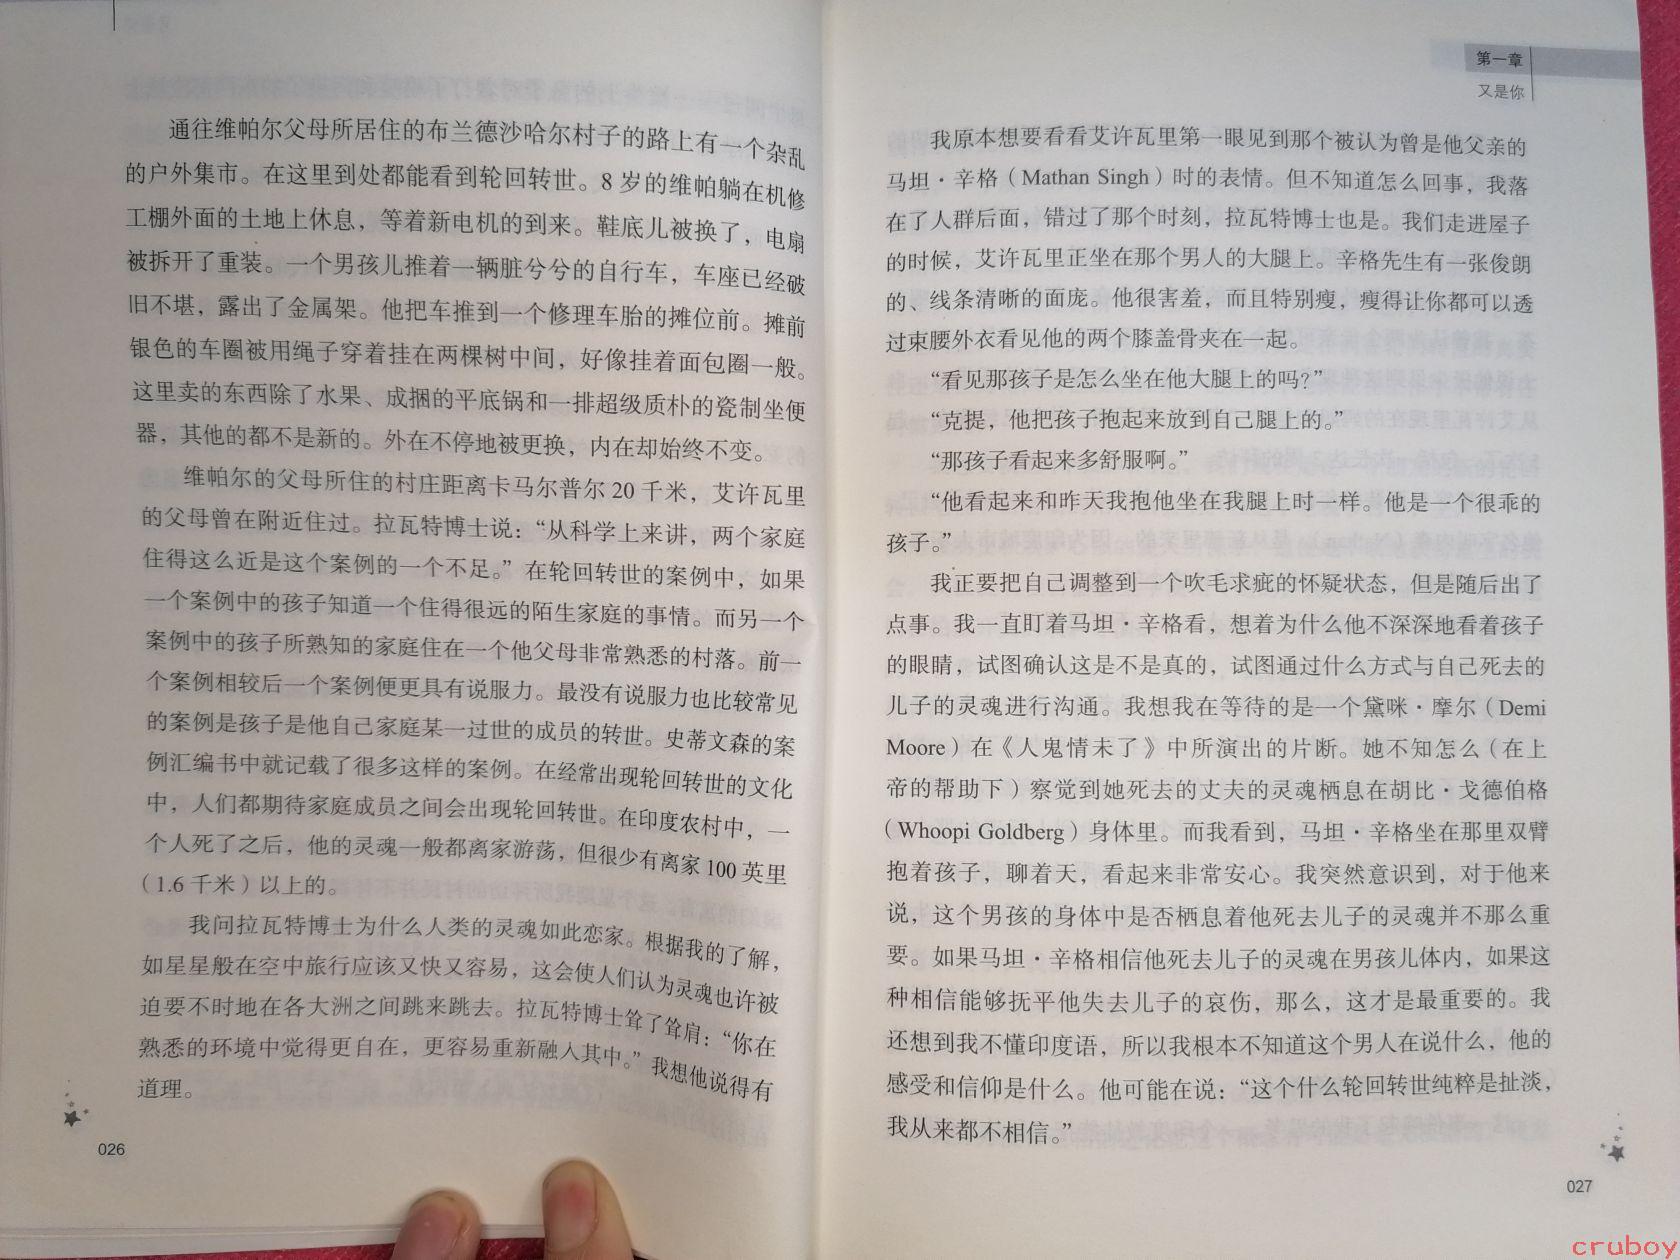 通往维帕尔父母所居住的布兰德沙哈尔村子的路上有一个杂乱
的户外集市。在这里到处都能看到轮回转世。8 岁的维帕躺在机修
工棚外面的土地上休息，等着新电机的到来。鞋底儿被换了，电扇
被拆开了重装。一个男孩儿推着一辆脏兮兮的自行车，车座已经破
旧不堪，露出了金属架。他把车推到一个修理车胎的摊位前。摊前
银色的车圈被用绳子穿着挂在两棵树中间，好像挂着面包圈一般。
这里卖的东西除了水果、成捆的平底锅和一排超级质朴的瓷制坐便
器，其他的都不是新的。外在不停地被更换，内在却始终不变。
维帕尔的父母所住的村庄距离卡马尔普尔 20 千米，艾许瓦里
的父母曾在附近住过。拉瓦特博士说：“从科学上来讲，两个家庭
住得这么近是这个案例的一个不足。”在轮回转世的案例中，如果
一个案例中的孩子知道一个住得很远的陌生家庭的事情。而另一个
案例中的孩子所熟知的家庭住在一个他父母非常熟悉的村落。前一
个案例相较后一个案例便更具有说服力。最没有说服力也比较常见
的案例是孩子是他自己家庭某一过世的成员的转世。史蒂文森的案
例汇编书中就记载了很多这样的案例。在经常出现轮回转世的文化
中，人们都期待家庭成员之间会出现轮回转世。在印度农村中，一
个人死了之后，他的灵魂一般都离家游荡，但很少有离家 100 英里
（1.6 千米）以上的。
我问拉瓦特博士为什么人类的灵魂如此恋家。根据我的了解，
如星星般在空中旅行应该又快又容易，这会使人们认为灵魂也许被
迫要不时地在各大洲之间跳来跳去。拉瓦特博士耸了耸肩：“你在
熟悉的环境中觉得更自在，更容易重新融入其中。”我想他说得有
道理。
026
第一章
又是你
我原本想要看看艾许瓦里第一眼见到那个被认为曾是他父亲的
马坦·辛格（Mathan Singh）时的表情。但不知道怎么回事，我落
在了人群后面，错过了那个时刻，拉瓦特博士也是。我们走进屋子
的时候，艾许瓦里正坐在那个男人的大腿上。辛格先生有一张俊朗
的、线条清晰的面庞。他很害羞，而且特别瘦，瘦得让你都可以透
过束腰外衣看见他的两个膝盖骨夹在一起。
“看见那孩子是怎么坐在他大腿上的吗？”
“克提，他把孩子抱起来放到自己腿上的。”
“那孩子看起来多舒服啊。”
“他看起来和昨天我抱他坐在我腿上时一样。他是一个很乖的
孩子。”
我正要把自己调整到一个吹毛求疵的怀疑状态，但是随后出了
点事。我一直盯着马坦·辛格看，想着为什么他不深深地看着孩子
的眼睛，试图确认这是不是真的，试图通过什么方式与自己死去的
儿子的灵魂进行沟通。我想我在等待的是一个黛咪·摩尔（Demi
Moore）在《人鬼情未了》中所演出的片断。她不知怎么（在上
帝的帮助下）察觉到她死去的丈夫的灵魂栖息在胡比·戈德伯格
（Whoopi Goldberg）身体里。而我看到，马坦·辛格坐在那里双臂
抱着孩子，聊着天，看起来非常安心。我突然意识到，对于他来
说，这个男孩的身体中是否栖息着他死去儿子的灵魂并不那么重
要。如果马坦·辛格相信他死去儿子的灵魂在男孩儿体内，如果这
种相信能够抚平他失去儿子的哀伤，那么，这才是最重要的。我
还想到我不懂印度语，所以我根本不知道这个男人在说什么，他的
感受和信仰是什么。他可能在说：“这个什么轮回转世纯粹是扯淡，
我从来都不相信。”
027
cruboy